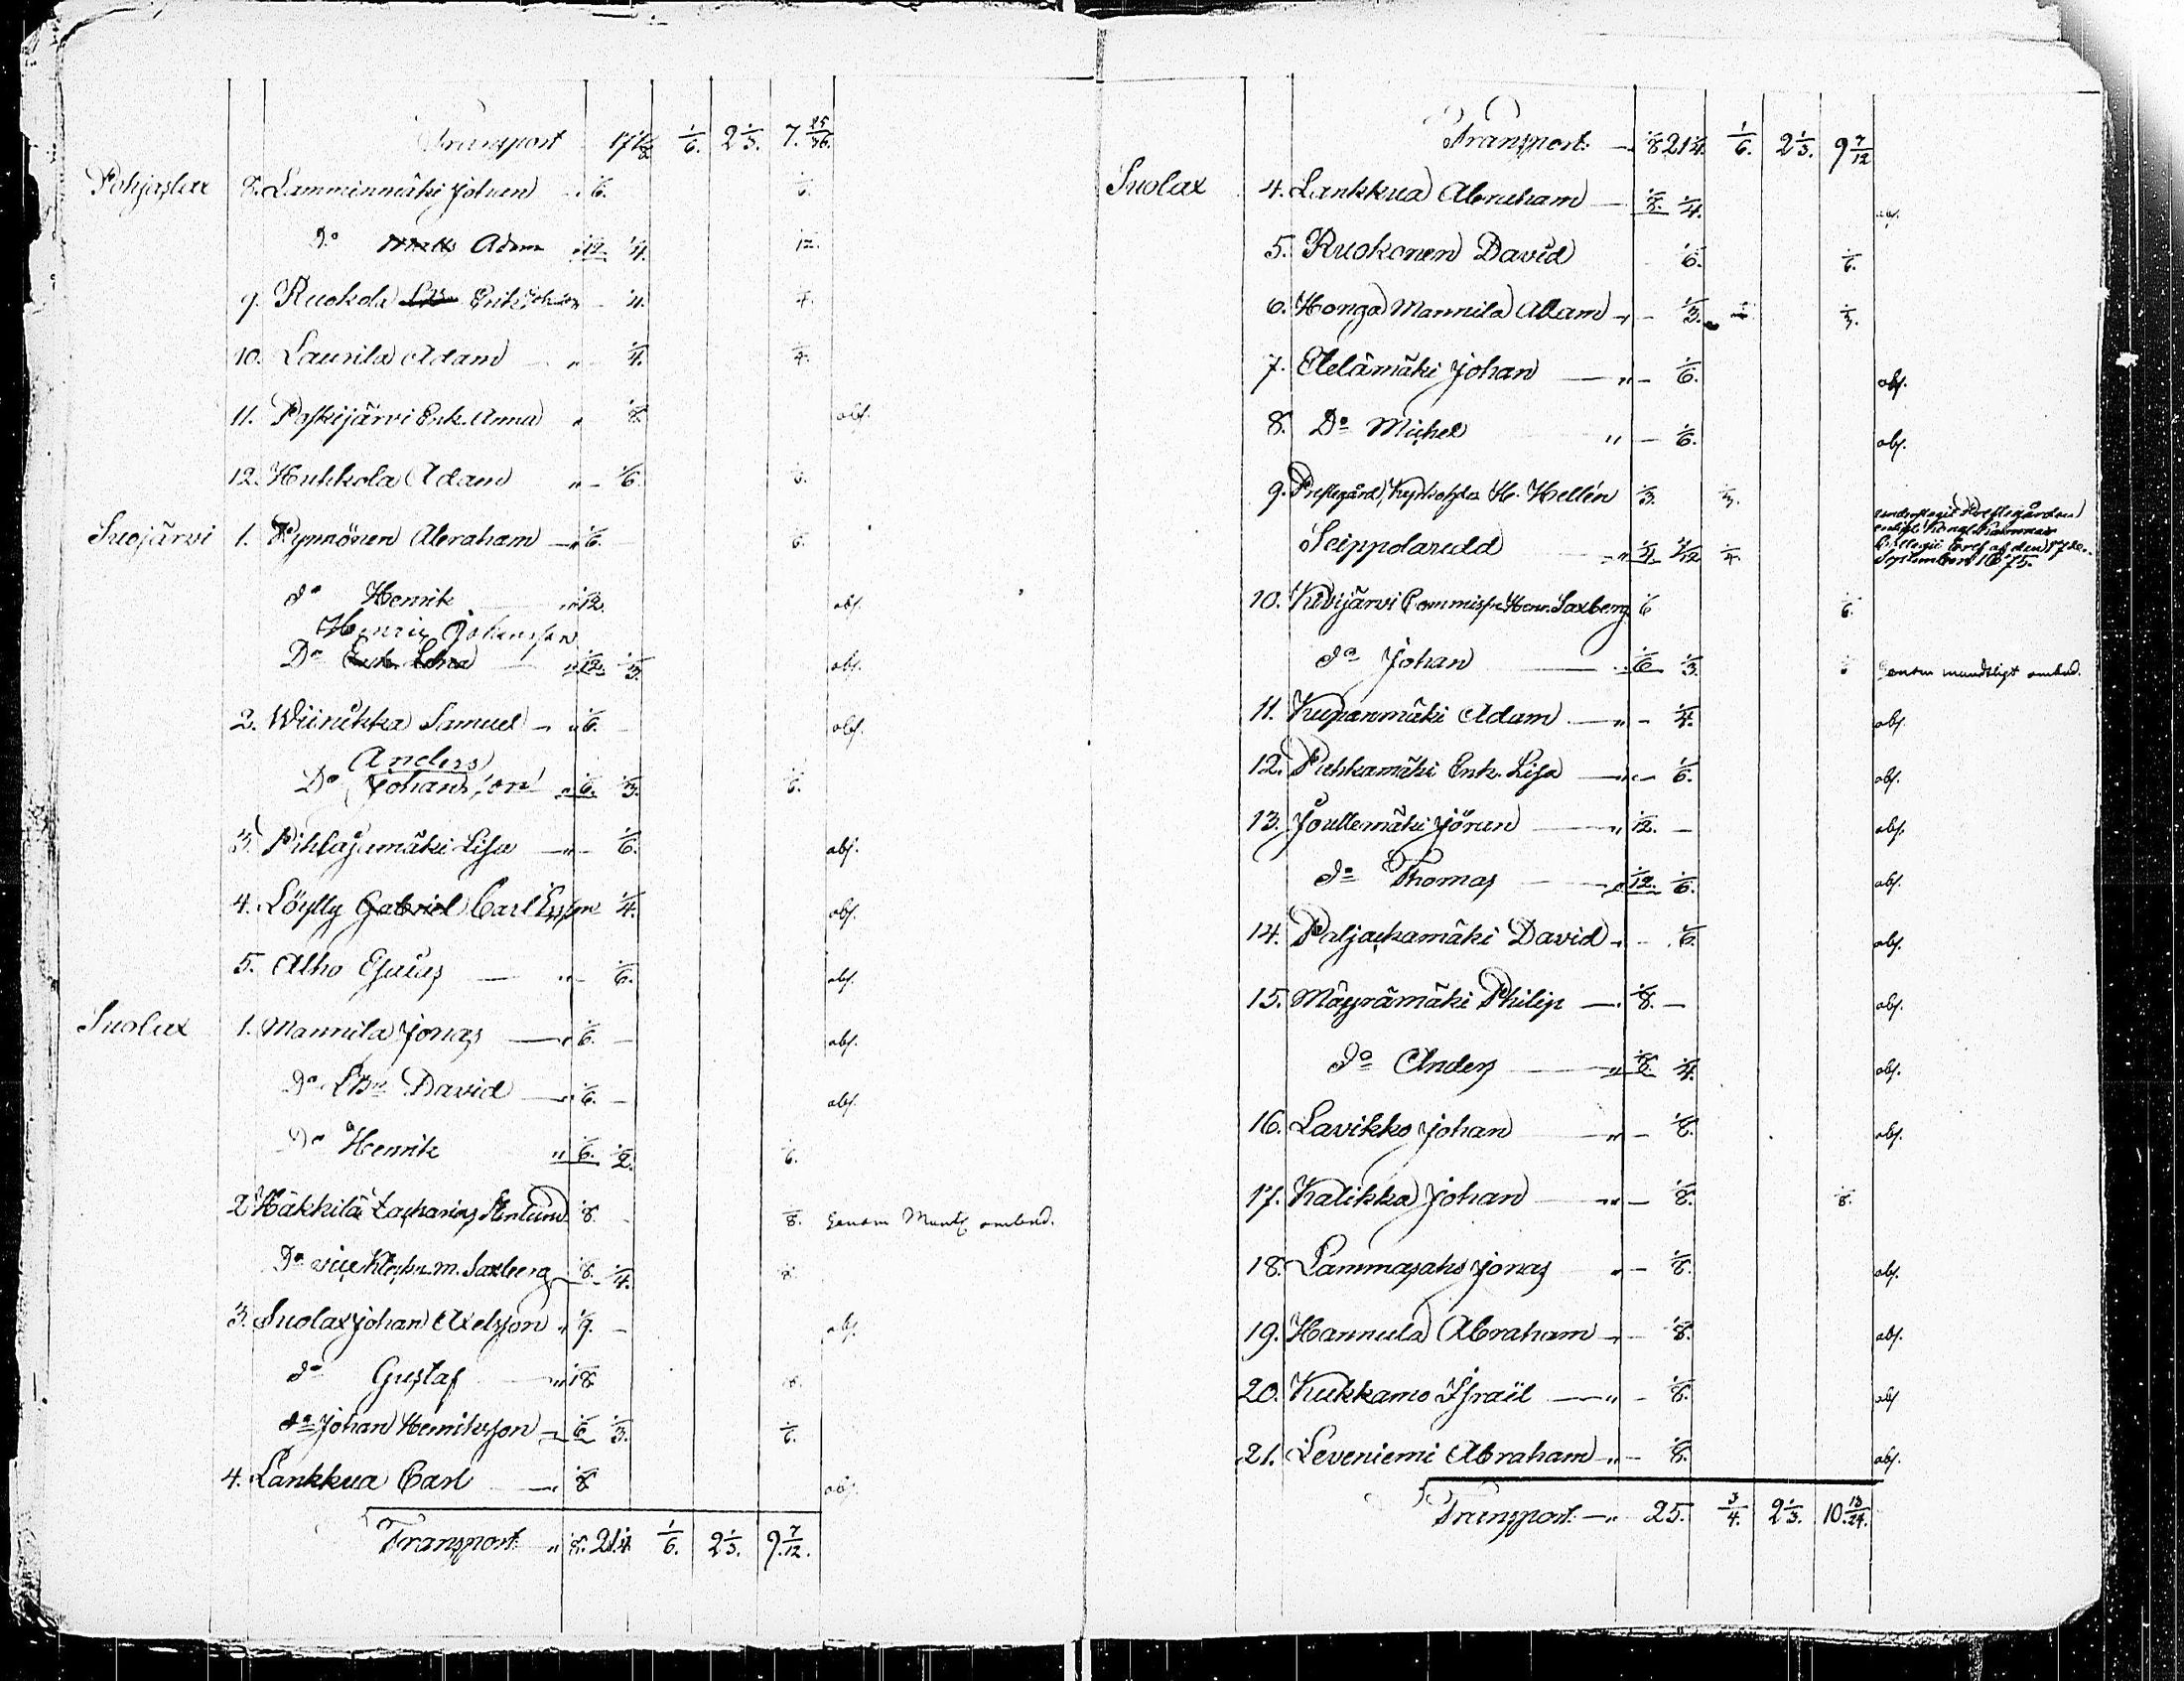 Transport 17 1/8 1/6. 2 1/3. 7. 25/36.
Pohjaslax 8. Lamminmäki Johan " 1/6. 1/6.
Do Matts Adam " 1/12. 1/4. 1/12.
9. Ruokola Erik Johansson - 1/4. 1/4.
10. Laurila Adam — " 1/4. 1/4.
11. Paskijärvi Enk. Anna " 1/8. abs.
12. Hukkola Adam " - 1/6. 1/6.
Suojärvi 1. Pynnönen Abraham — " 1/6. 1/6.
do Henrik " 1/12. abs.
Henric Johansson
Do Enk. Lena — " 1/12. 1/3. abs.
2. Wiinikka Samuel — " 1/6. - abs.
Anders
Do Johansson " 1/6. 1/3. 1/6.
3. Pihlajamäki Lisa — " - 1/6. abs.
4. Löylly Gabriel Carl Ersson 1/4. abs.
5. Alho Esaias — " - 1/6. abs.
Suolax 1. Mannila Jonas — " 1/6. - abs.
Do David — " 1/6. - abs.
Do Henrik " 1/6. 1/2. 1/6.
2. Häkkilä Zacharias Stenlund 1/8. - 1/8. Genom Muntl. ombud.
Do vice m. Saxberg 1/8. 1/4. 1/8.
3. Suolax Johan Axelsson " 1/9. - abs.
do Gustaf — " 1/18 1/18.
do Johan Henriksson — " 1/6 1/3. 1/6.
4. Lankkua Carl — " 1/8 abs.
Transport " 1/8. 21 1/4. 1/6. 2 1/3. 9. 7/12.
Transport. — 1/8 21 1/4. 1/6. 2 1/3. 9 7/12
Suolax 4. Lankkua Abraham — 1/8. 1/4. abs.
5. Ruokonen David 1/6. 1/6.
6. Honga Mannila Adam — " - 1/3. 1/3.
7. Etelämäki Johan — " - 1/6. abs.
8. Do Michel " - 1/6. abs.
9. Prestegård, Kyrkoh. H. Hellén 1/3. 1/3.
Seippolaredd — " 1/4. 7/12 1/4. Prestegården
enligt Kongl. Kammar
Collegii bref af den
September 1675.
10. Kivijärvi Commiss. Henr. Saxberg 1/6 1/6.
do Johan — " 1/6 1/3. 1/6 Genom mundtligt ombud.
11. Kupanmäki Adam — " - 1/4. abs.
12. Puhkamäki Enk. Lisa — " - 1/6. abs.
13. Jouttemäki Jöran — " 1/12. - abs.
do Thomas — " 1/12. 1/6. abs.
14. Paljackamäki David — " - 1/6. abs.
15. Mäyrämäki Philip — " 1/8. - abs.
do Anders — " 1/8. 1/4. abs.
16. Lavikko Johan " - 1/8. abs.
17. Kalikka Johan — " - 1/8. 1/8.
18. Lammasaho Jonas " - 1/8. abs.
19. Hannula Abraham — " - 1/8. abs.
20. Kukkamo Israël — " - 1/8. abs.
21. Leveniemi Abraham — " - 1/8. abs.
Transport — " 25. 3/4. 2 1/3. 10 13/24.